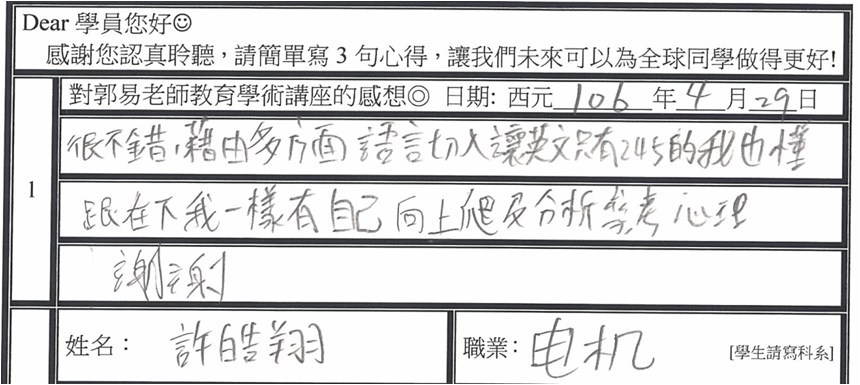 Dear 學員您好☺
感謝您認真聆聽，請簡單寫 3 句心得，讓我們未來可以為全球同學做得更好!
1
對郭易老師教育學術講座的感想◎ 日期: 西元 106 年 4 月 29 日
很不錯，藉由多方面語言切入讓英文只有245的我也懂
跟在下我一樣有自己向上爬及分析學考心理
謝謝
姓名： 許皓翔
職業： 电机 [學生請寫科系]